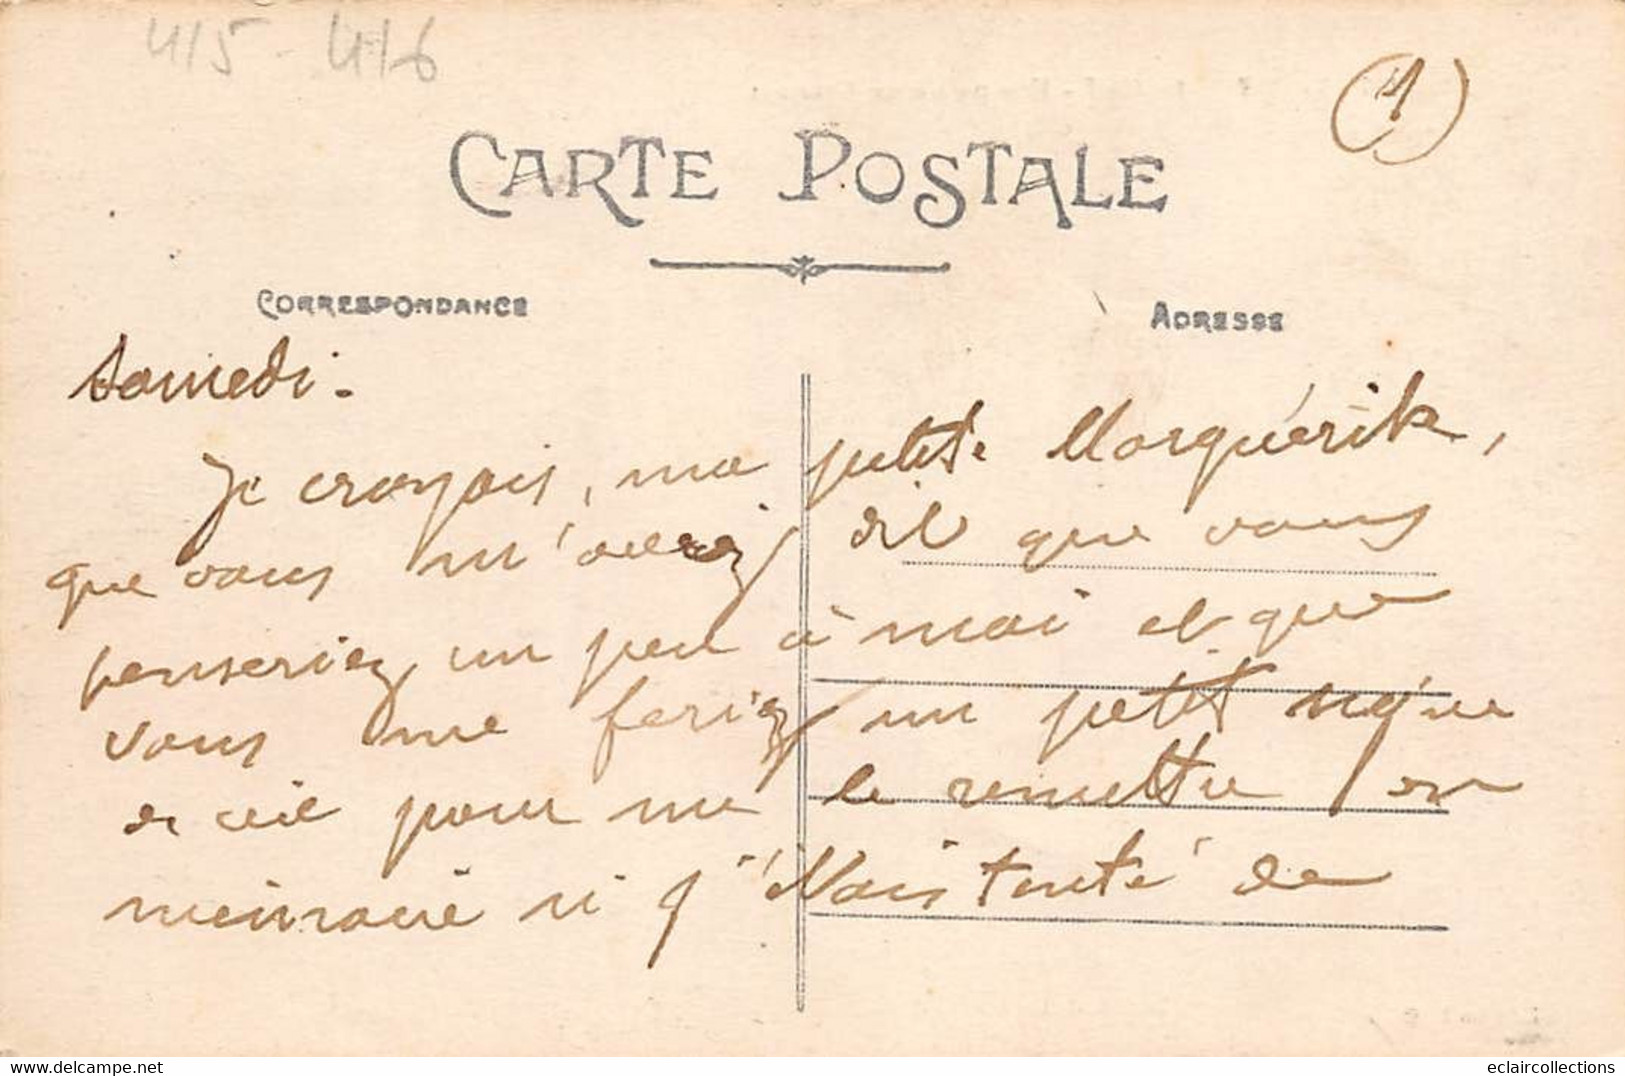 415 - 416
1
CARTE POSTALE
CORRESPONDANCE
ADRESSE
Samedi.
Je croyais, ma petite Marguerite,
que vous m'aviez dit que vous
penseriez un peu à moi et que
vous me feriez un petit signe
d'œil pour me le remettre en
mémoire si j'étais tenté de
www.eclaircollections